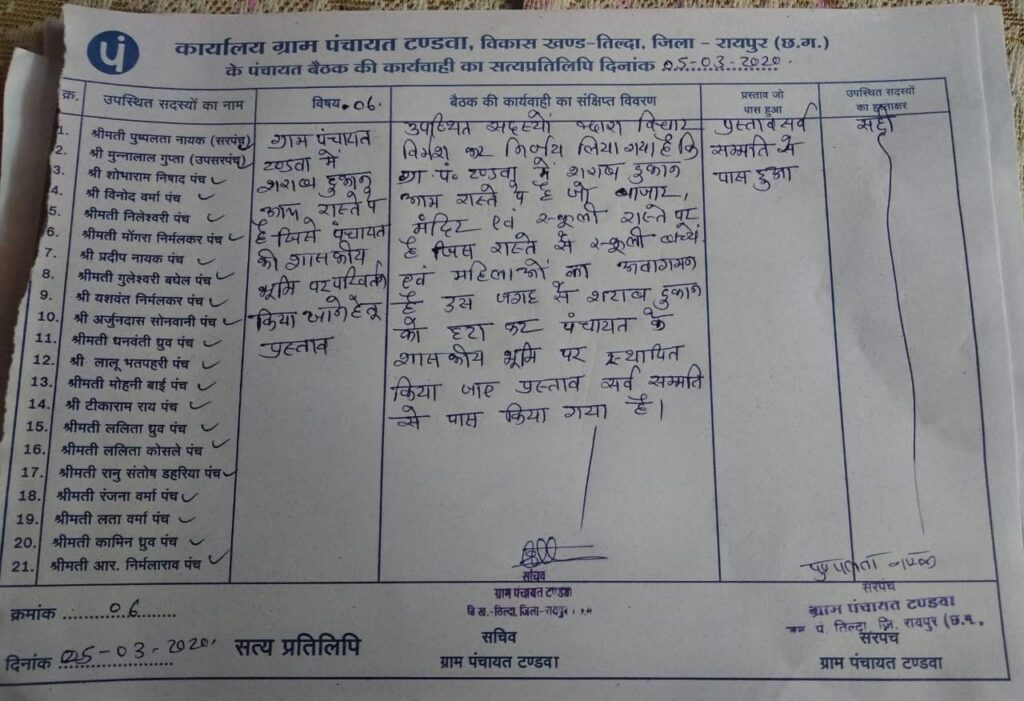 पं
कार्यालय ग्राम पंचायत टण्डवा, विकास खण्ड-तिल्दा, जिला - रायपुर (छ.ग.)
के पंचायत बैठक की कार्यवाही का सत्यप्रतिलिपि दिनांक 05-03-2020.
क्र.
उपस्थित सदस्यों का नाम
1. श्रीमती पुष्पलता नायक (सरपंच)
2. श्री मुन्नालाल गुप्ता (उपसरपंच)
3. श्री शोभाराम निषाद पंच
4. श्री विनोद वर्मा पंच
5. श्रीमती निलेश्वरी पंच
6. श्रीमती मोंगरा निर्मलकर पंच
7. श्री प्रदीप नायक पंच
8. श्रीमती गुलेश्वरी बघेल पंच
9. श्री यशवंत निर्मलकर पंच
10. श्री अर्जुनदास सोनवानी पंच
11. श्रीमती धनवंती ध्रुव पंच
12. श्री लालू भतपहरी पंच
13. श्रीमती मोहनी बाई पंच
14. श्री टीकाराम राय पंच
15. श्रीमती ललिता ध्रुव पंच
16. श्रीमती ललिता कोसले पंच
17. श्रीमती रानु संतोष डहरिया पंच
18. श्रीमती रंजना वर्मा पंच
19. श्रीमती लता वर्मा पंच
20. श्रीमती कामिन ध्रुव पंच
21. श्रीमती आर. निर्मलाराव पंच
विषय.06.
ग्राम पंचायत
टण्डवा में
शराब दुकान
आम रास्ते पे
है जिसे पंचायत
की शासकीय
भूमि पर परिवर्तन
किया जाने हेतु
प्रस्ताव
बैठक की कार्यवाही का संक्षिप्त विवरण
उपस्थित सदस्यों द्वारा विचार
विमेश कर निर्णय लिया गया है कि
ग्रा. पं. टण्डवा में शराब दुकान
आम रास्ते पे है जो बाजार,
मंदिर एवं स्कूली रास्ते पर
है जिस रास्ते से स्कूली बच्चे
एवं महिलाओं का आवागमन
है उस जगह से शराब दुकान
को हटा कर पंचायत के
शासकीय भूमि पर स्थापित
किया जाए प्रस्ताव सर्व सम्मति
से पास किया गया है।
प्रस्ताव जो
पास हुआ
प्रस्ताव सर्व
सम्मति से
पास हुआ
उपस्थित सदस्यों
का हस्ताक्षर
सही
सचिव
ग्राम पंचायत टण्डवा
वि.ख.-तिल्दा, जिला-रायपुर
सचिव
ग्राम पंचायत टण्डवा
पुष्पलता नायक
सरपंच
ग्राम पंचायत टण्डवा
पं. तिल्दा, जि. रायपुर (छ.ग.
सरपंच
ग्राम पंचायत टण्डवा
क्रमांक 06
दिनांक 05-03-2020. सत्य प्रतिलिपि